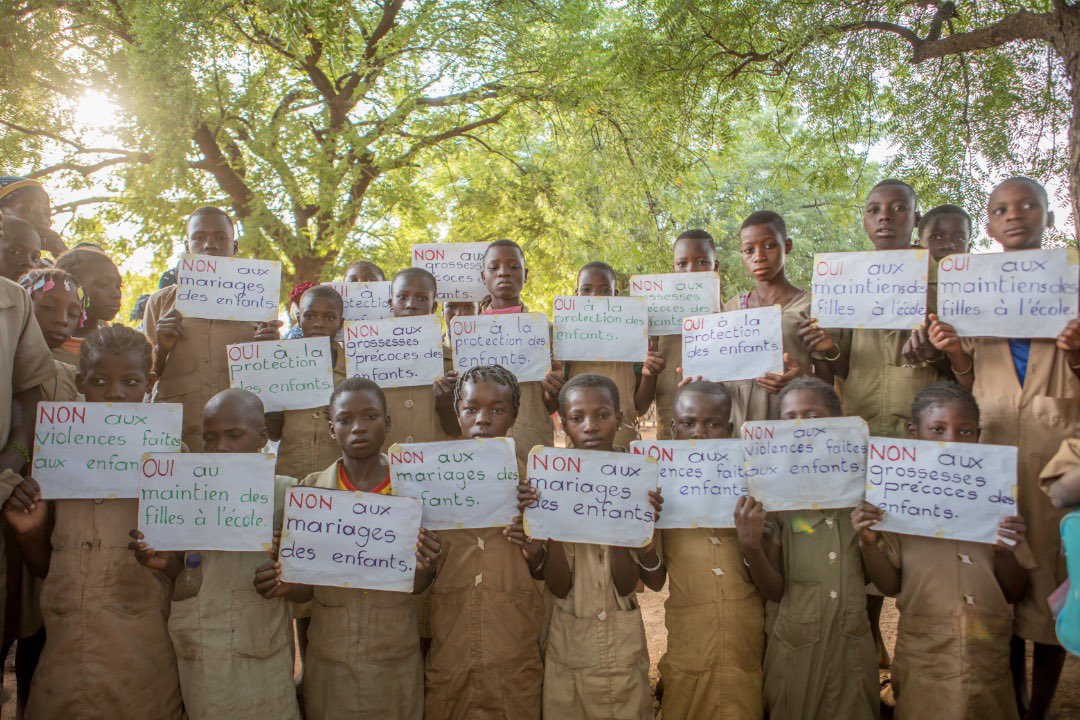 NON aux
mariages
des enfants.
NON aux
grossesses
précoces des
enfants.
OUI à la
protection
des enfants.
NON aux
grossesses
précoces des
enfants.
OUI à la
protection des
enfants.
OUI à la
protection des
enfants.
NON aux
grossesses
OUI à la
protection
des enfants.
OUI aux
maintiens des
filles à l'école.
OUI aux
maintiens des
filles à l'école.
NON aux
violences faites
aux enfants
OUI au
maintien des
filles à l'école.
NON aux
mariages
des enfants.
NON aux
mariages des
enfants.
NON aux
mariages
des enfants.
NON aux
violences faites
aux enfants.
NON aux
violences faites
aux enfants.
NON aux
grossesses
précoces des
enfants.